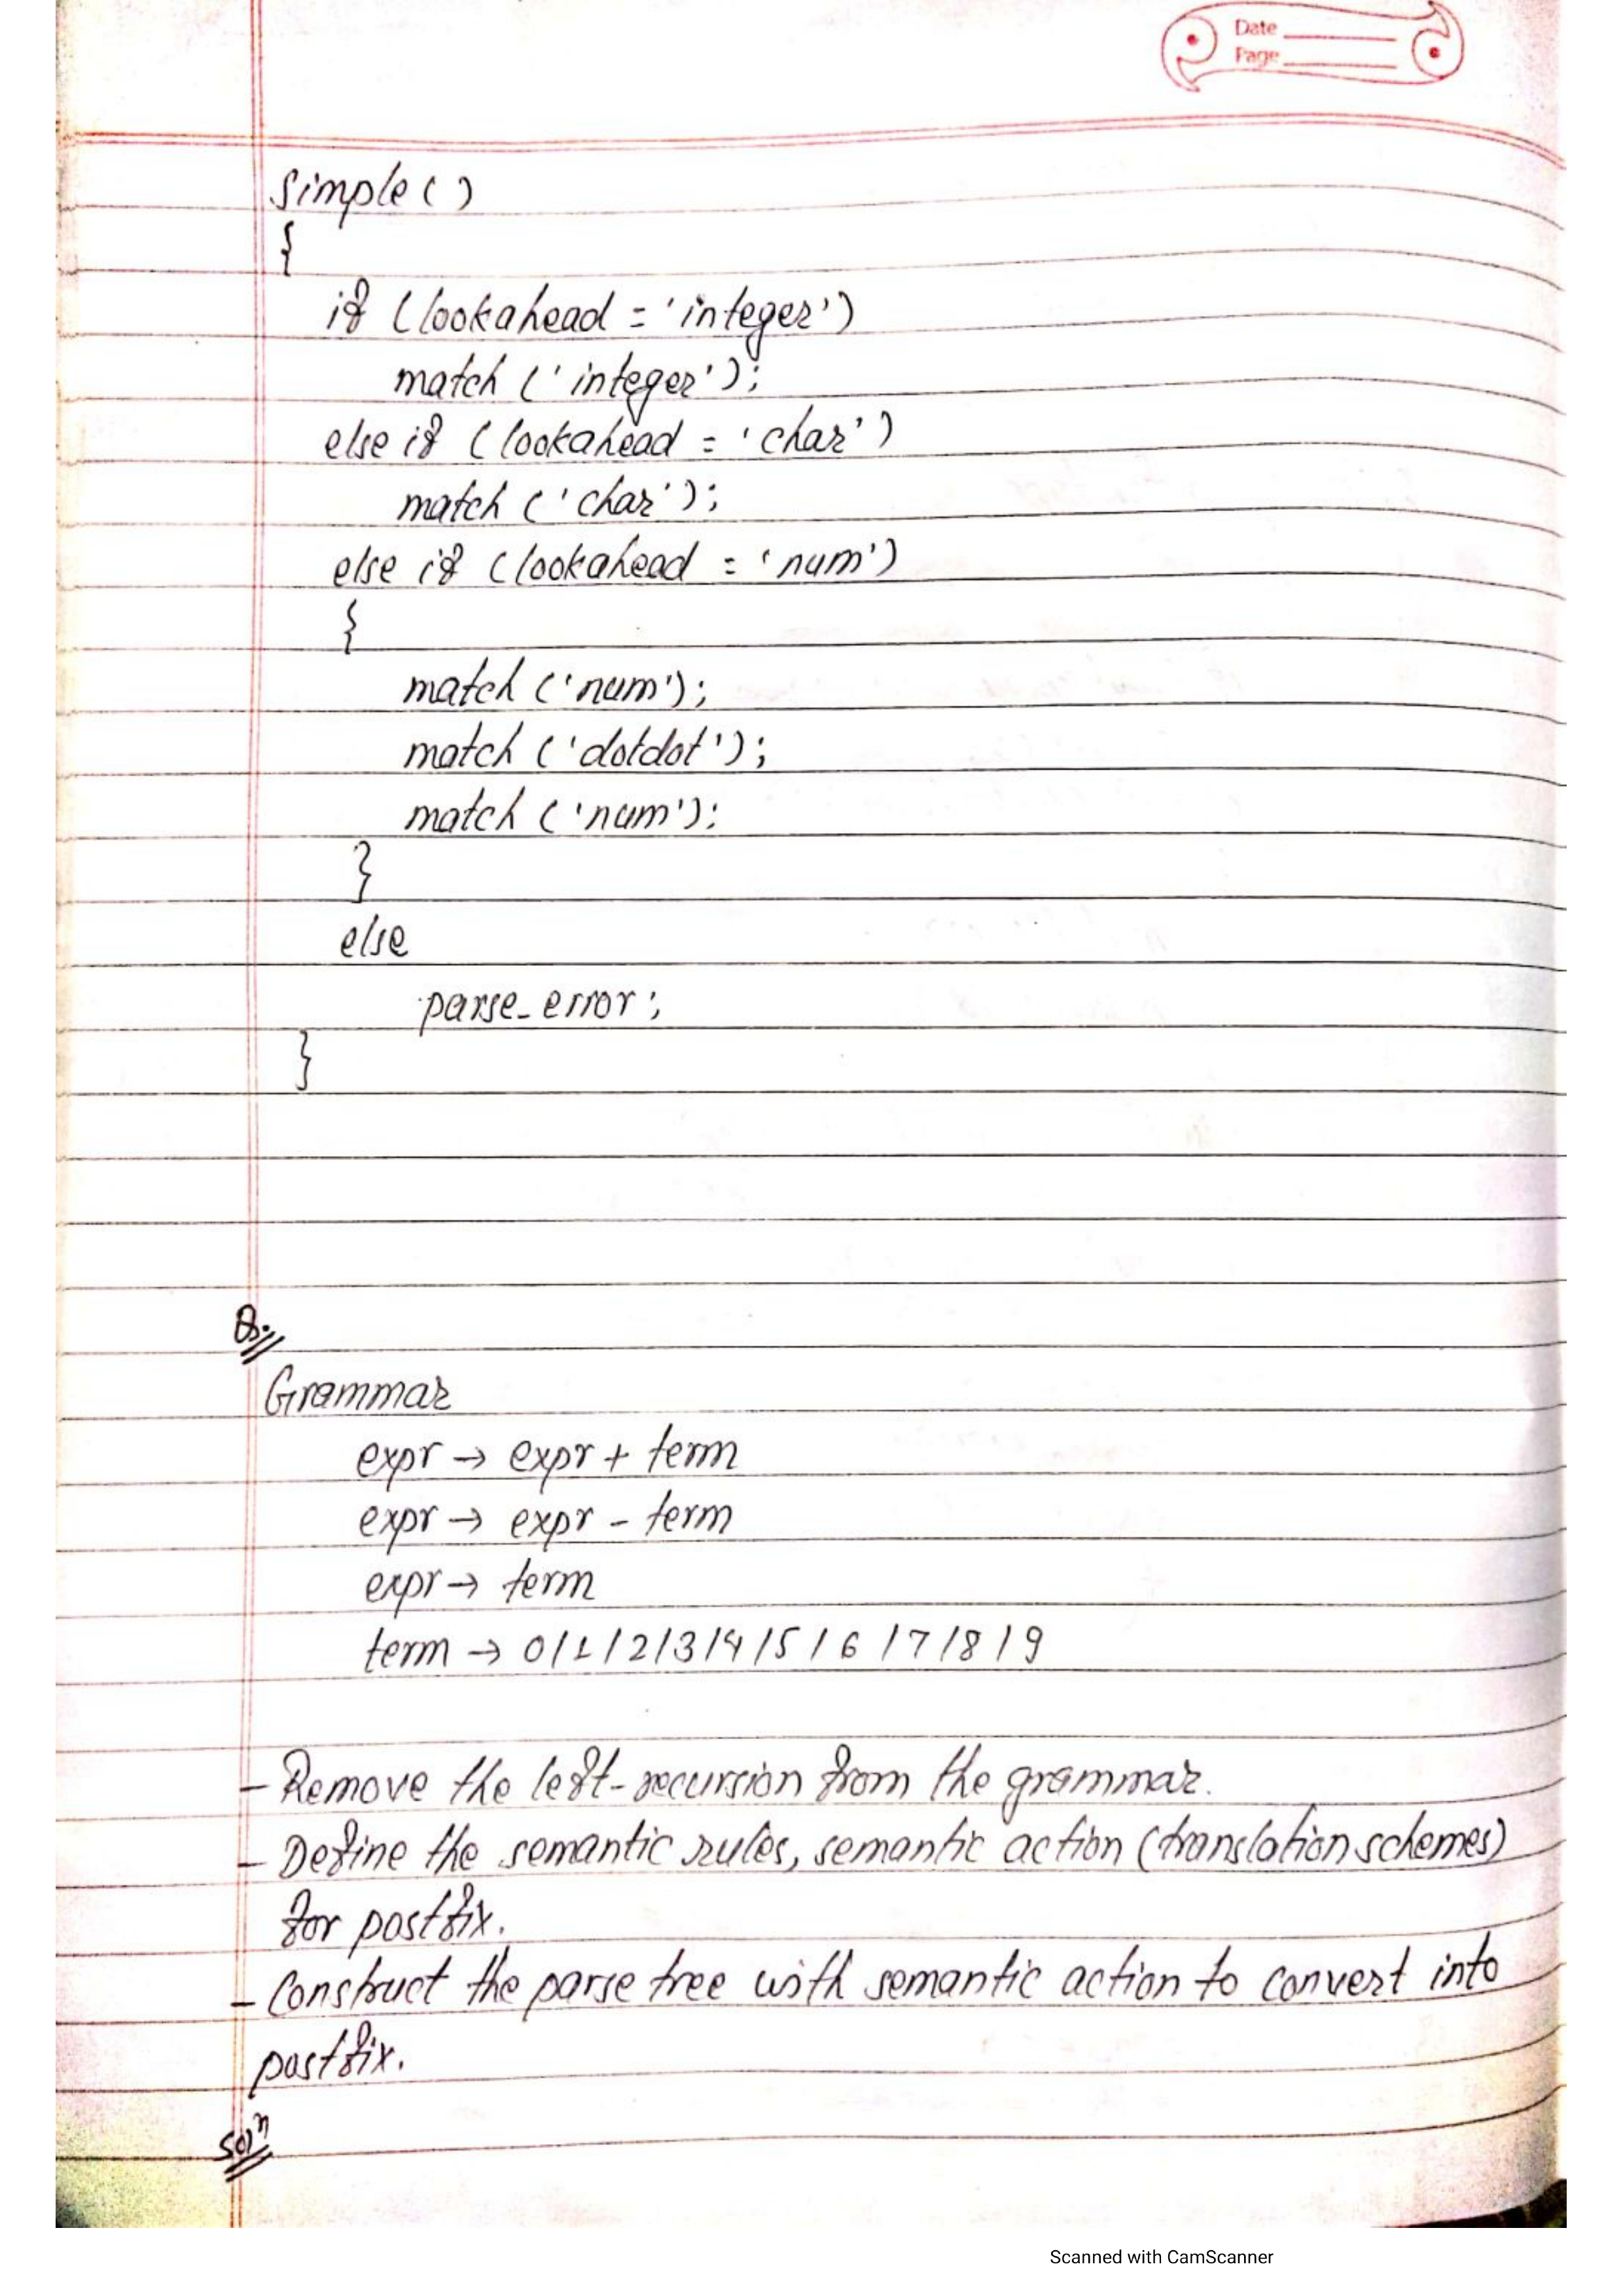 Date
Page
simple ( )
{
if (lookahead = 'integer')
match ('integer');
else if (lookahead = 'char')
match ('char');
else if (lookahead = 'num')
{
match ('num');
match ('dotdot');
match ('num');
}
else
parse_error;
}
Q.
Grammar
expr → expr + term
expr → expr - term
expr → term
term → 0/1/2/3/4/5/6/7/8/9
- Remove the left-recursion from the grammar.
- Define the semantic rules, semantic action (translation schemes)
for postfix.
- Construct the parse tree with semantic action to convert into
postfix.
Solⁿ
Scanned with CamScanner